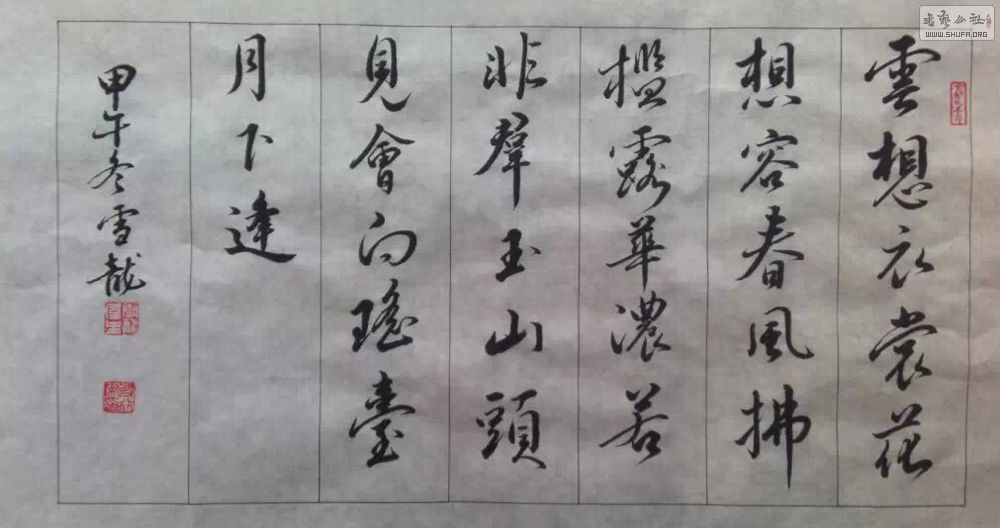 雲想衣裳花
想容春風拂
檻露華濃若
非羣玉山頭
見會向瑤臺
月下逢
甲午冬雪龍
書藝公社
WWW.SHUFA.ORG